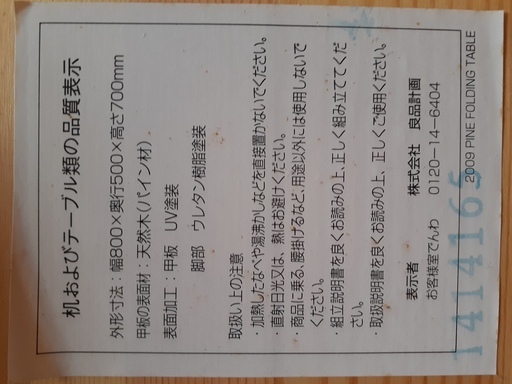 机およびテーブル類の品質表示
外形寸法：幅800×奥行500×高さ700mm
甲板の表面材：天然木（パイン材）
表面加工：甲板　UV塗装
脚部　ウレタン樹脂塗装
取扱い上の注意
・加熱したなべや湯沸かしなどを直接置かないでください。
・直射日光又は、熱はお避けください。
・商品に乗る、腰掛けるなど、用途以外には使用しないで
ください。
・組立説明書を良くお読みの上、正しく組み立ててくだ
さい。
・取扱説明書を良くお読みの上、正しくご使用ください。
表示者　株式会社　良品計画
お客様室でんわ　0120－14－6404
2009 PINE FOLDING TABLE
1414165